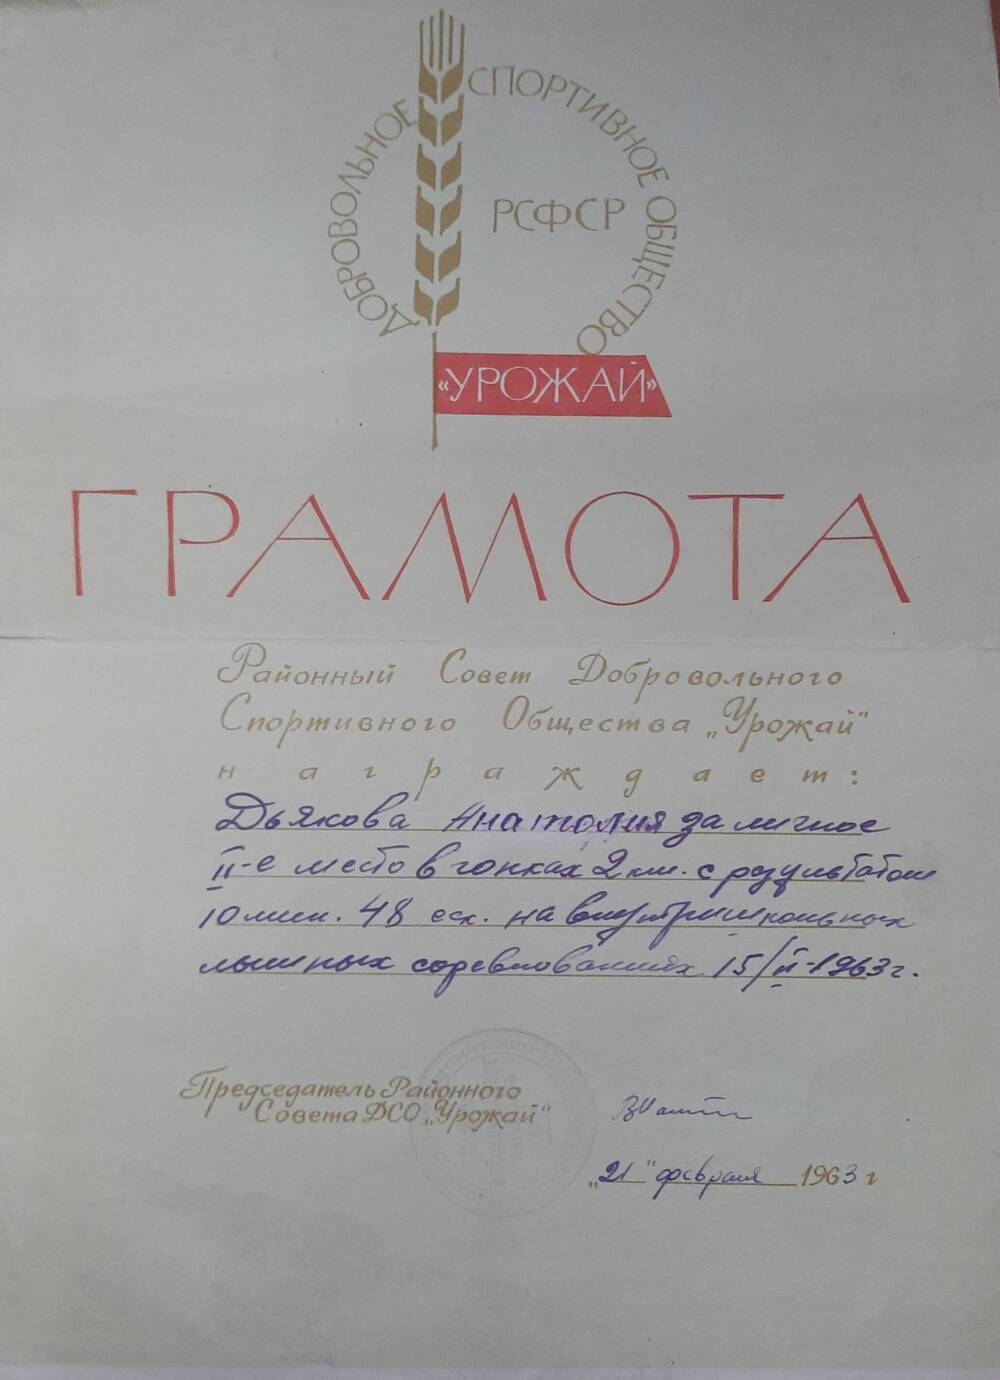 ДОБРОВОЛЬНОЕ СПОРТИВНОЕ ОБЩЕСТВО
РСФСР
«УРОЖАЙ»
ГРАМОТА
Районный Совет Добровольного
Спортивного Общества „Урожай"
награждает:
Дьякова Анатолия за личное
II-е место в гонках 2 км. с результатом
10 мин. 48 сек. на внутришкольных
лыжных соревнованиях 15/II-1963 г.
Председатель Районного
Совета ДСО „Урожай"
„21" февраля 1963 г